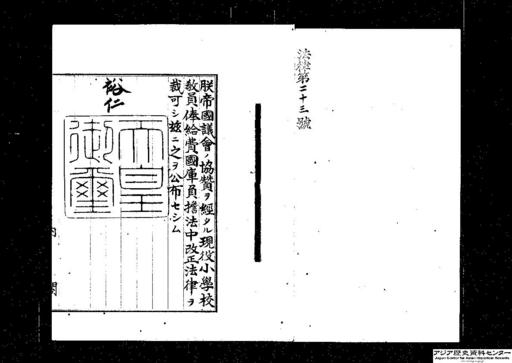 法律第二十三號
朕帝國議會ノ協贊ヲ經タル現役小學校
教員俸給費國庫負擔法中改正法律ヲ
裁可シ茲ニ之ヲ公布セシム
裕仁
天皇
御璽
内閣
アジア歴史資料センター
Japan Center for Asian Historical Records